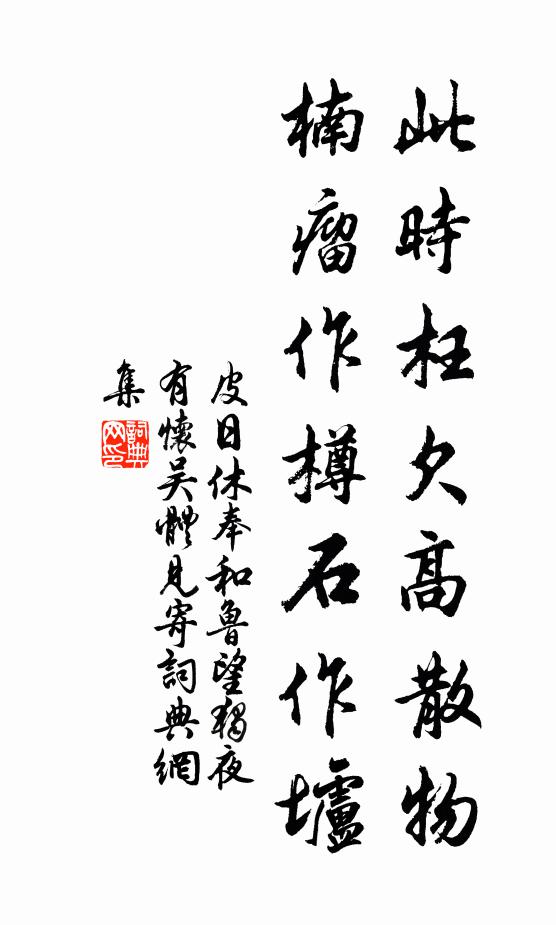 此時枉欠高散物
楠瘤作樽石作壚
皮日休奉和魯望獨夜
有懷吴體見寄詞典網
集
詞典
网印